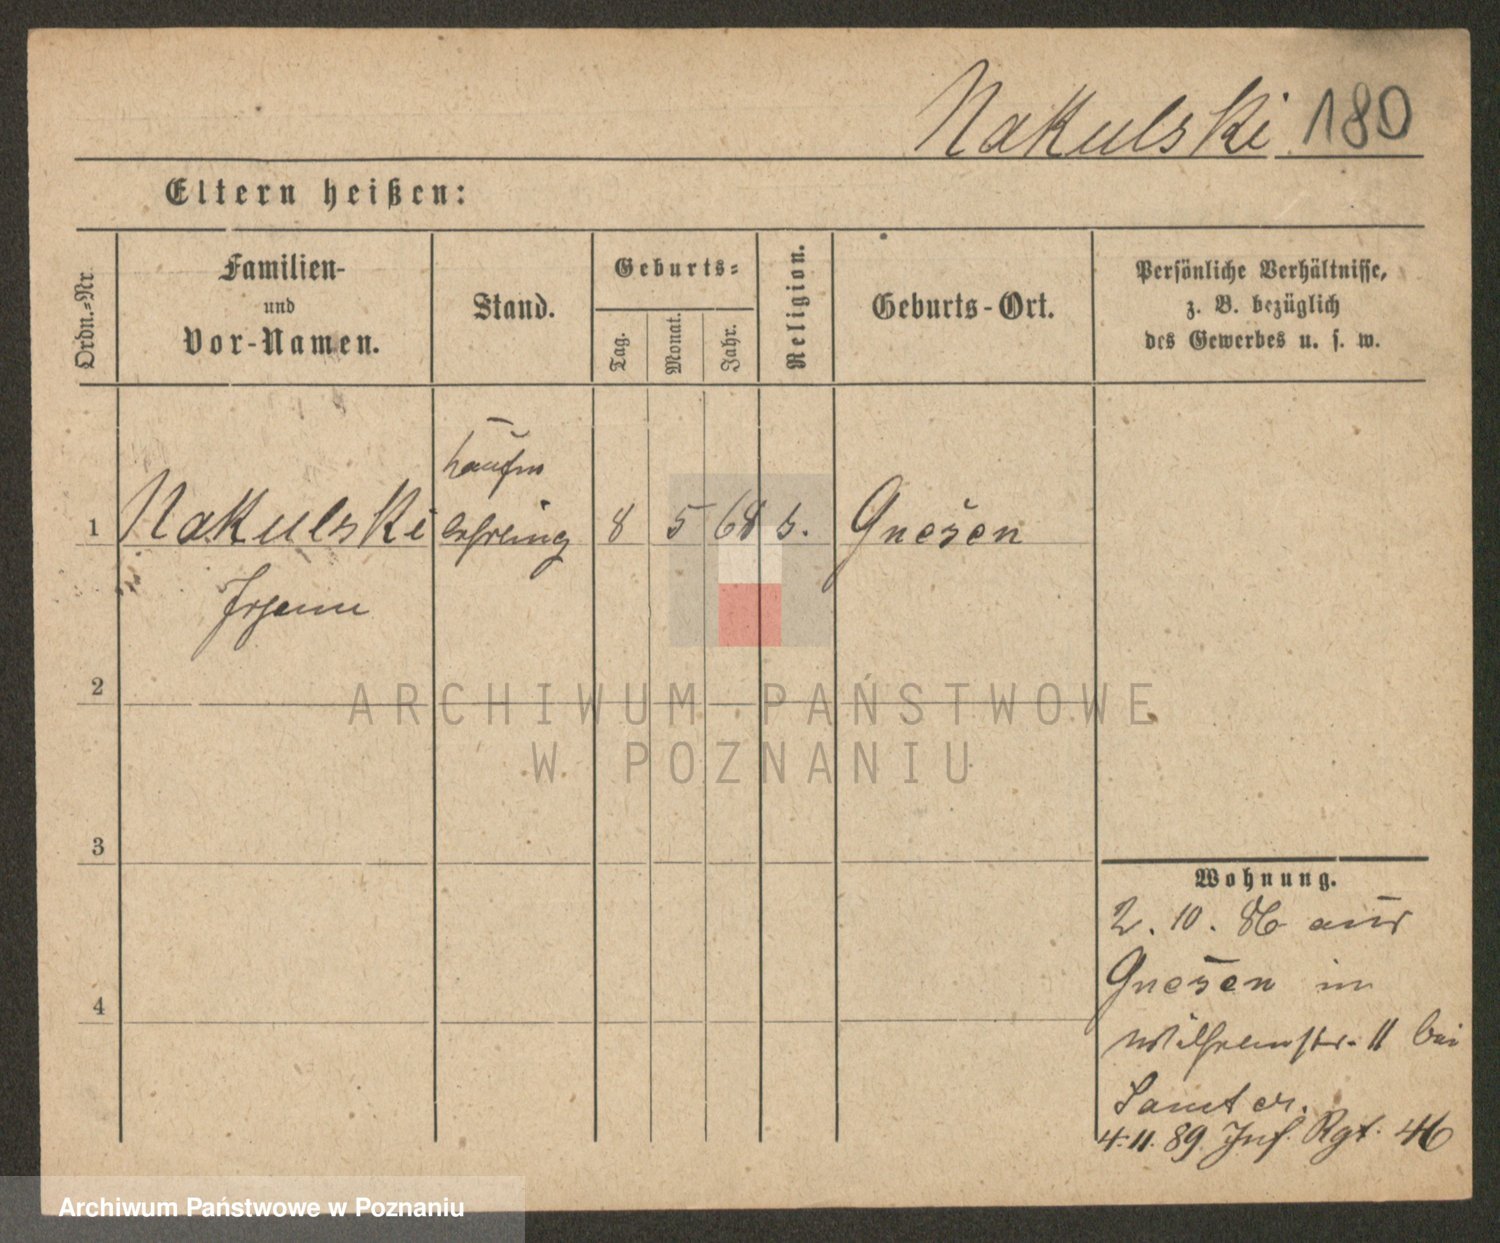 Nakulski 180
Eltern heißen:
Ordn.-Nr.
Familien-
und
Vor-Namen.
Stand.
Geburts-
Tag.
Monat.
Jahr.
Religion.
Geburts-Ort.
Persönliche Verhältnisse,
z. B. bezüglich
des Gewerbes u. s. w.
Kaufm
1 Nakulski lehrling 8 5 68 Gnesen
Johann
2
ARCHIWUM PAŃSTWOWE
W POZNANIU
3
4
Wohnung.
2. 10. 86 aus
Gnesen in
Wilhelmstr. 11 bei
Samter.
4. 11. 89. Inf. Rgt. 46
Archiwum Państwowe w Poznaniu